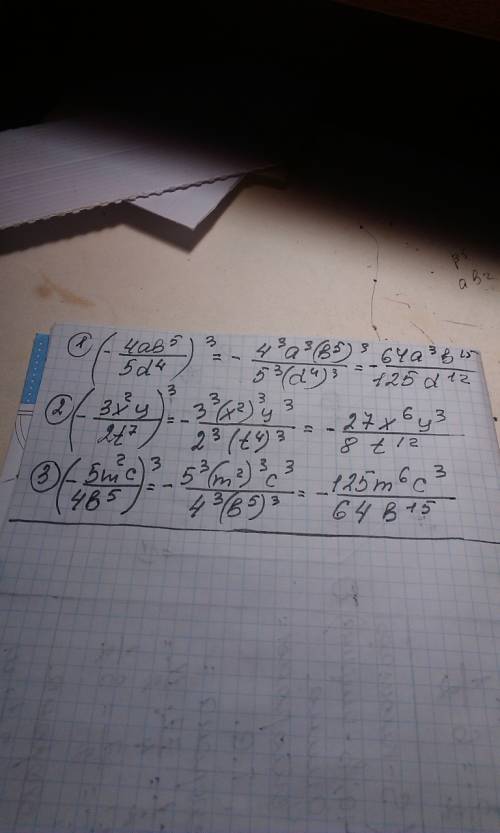 p5
ab2
① (-4ab⁵/5d⁴)³ = - 4³a³(b⁵)³/5³(d⁴)³ = -64a³b¹⁵/125d¹²
② (-3x²y/2t⁷)³ = - 3³(x²)³y³/2³(t⁴)³ = - 27x⁶y³/8t¹²
③ (-5m²c/4b⁵)³ = - 5³(m²)³c³/4³(b⁵)³ = - 125m⁶c³/64b¹⁵